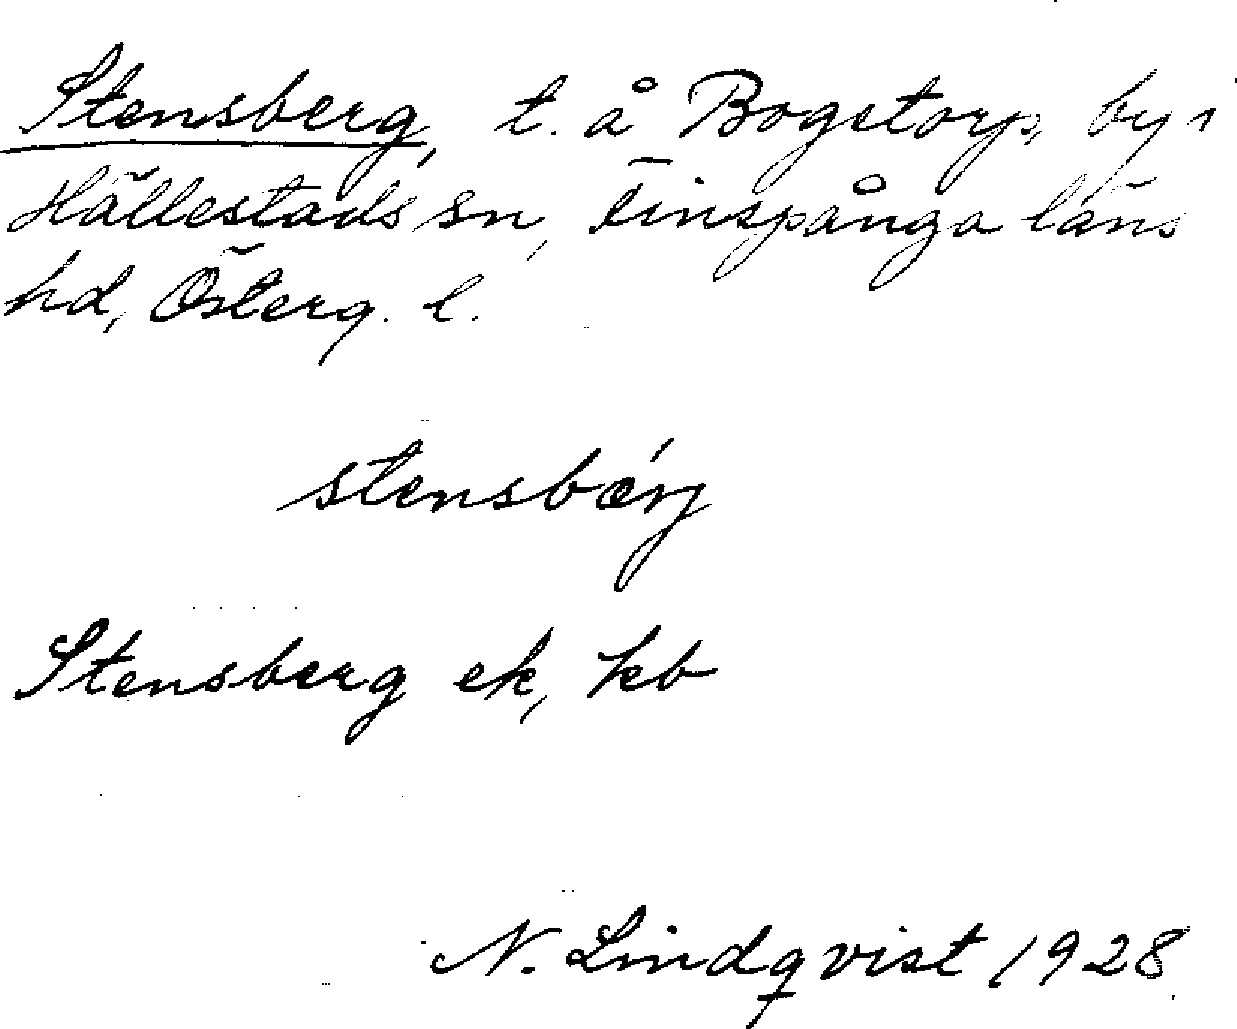 Stensberg, t. å Bogetorp, by i
Hällestads sn, Finspånga läns
hd, Österg. l.
stensbærj
Stensberg ek, kb
N. Lindqvist 1928